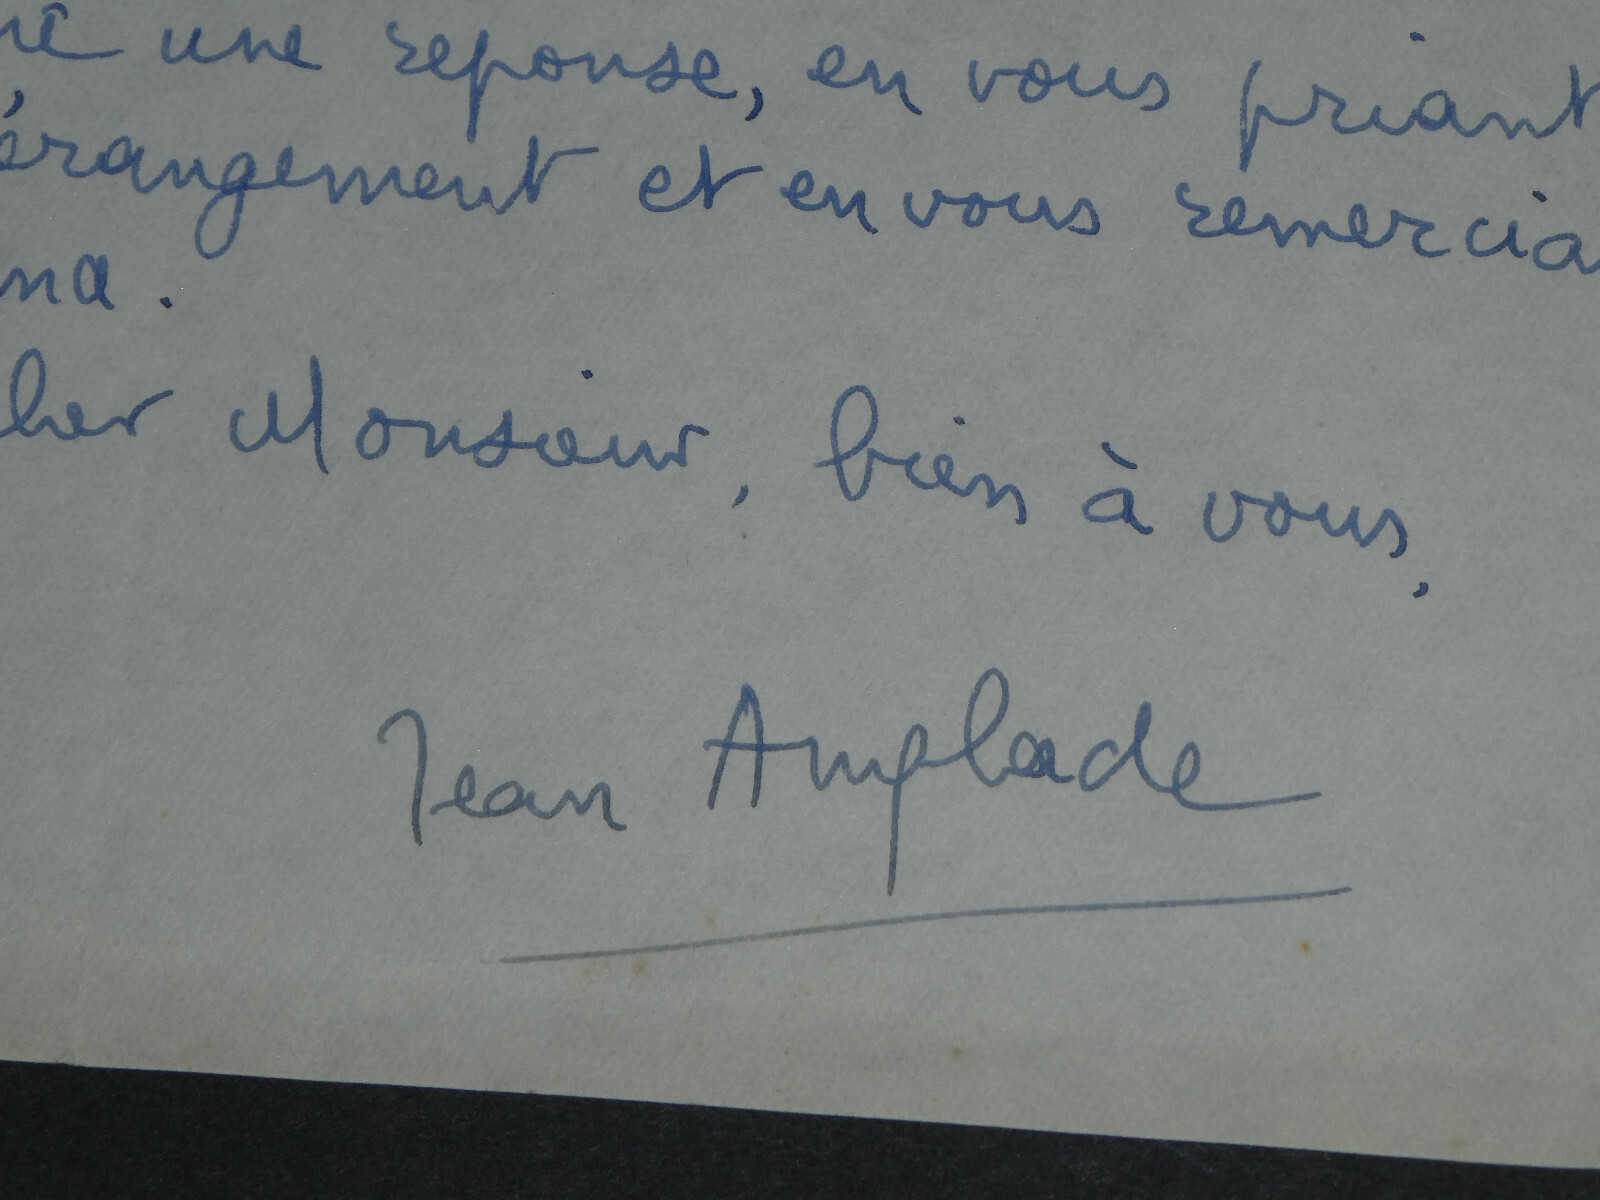 une reponse, en vous priant
érangement et en vous remercia
na.
cher Monsieur, bien à vous,
Jean Anglade